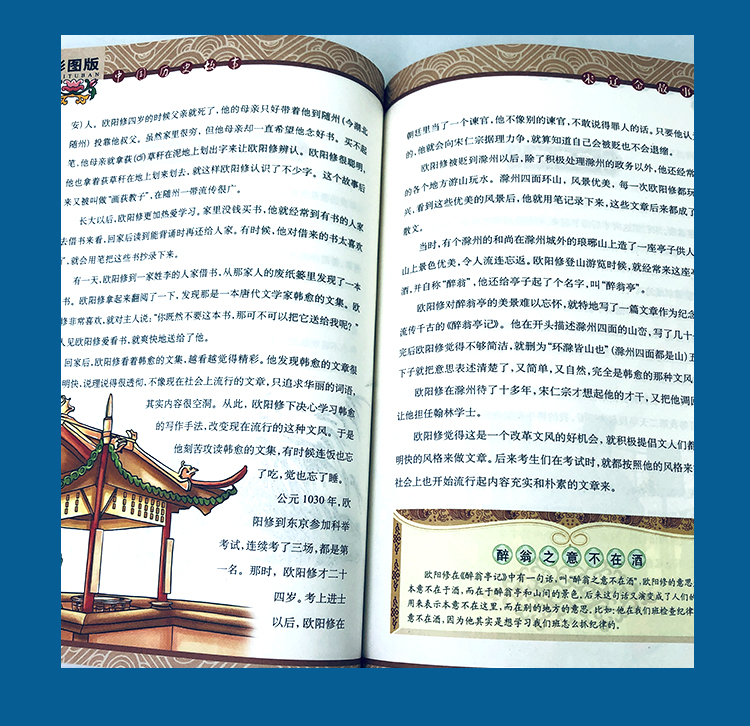 彩图版
CAITUBAN
中国历史故事
安)人。欧阳修四岁的时候父亲就死了,他的母亲只好带着他到随州(今湖北
随州)投靠他叔父。虽然家里很穷,但他母亲却一直希望他念好书。买不起
笔,他母亲就拿荻(dí)草秆在泥地上划出字来让欧阳修辨认。欧阳修很聪明,
他也拿着荻草秆在地上划来划去,就这样欧阳修认识了不少字。这个故事后
来又被叫做“画荻教子”,在随州一带流传很广。
长大以后,欧阳修更加热爱学习。家里没钱买书,他就经常到有书的人家
去借书来看,回家后读到能背诵时再还给人家。有时候,他对借来的书太喜欢
”,就会用笔把这些书抄录下来。
有一天,欧阳修到一家姓李的人家借书,从那家人的废纸篓里发现了一本
书。欧阳修拿起来翻阅了一下,发现那是一本唐代文学家韩愈的文集。欧
修非常喜欢,就对主人说:“你既然不要这本书,那可不可以把它送给我呢?”
人见欧阳修爱看书,就爽快地送给了他。
回家后,欧阳修看着韩愈的文集,越看越觉得精彩。他发现韩愈的文章很
明快,说理说得很透彻,不像现在社会上流行的文章,只追求华丽的词语,
其实内容很空洞。从此,欧阳修下决心学习韩愈
的写作手法,改变现在流行的这种文风。于是
他刻苦攻读韩愈的文章,有时候连饭也忘
了吃,觉也忘了睡。
公元1030年,欧
阳修到东京参加科举
考试,连续考了三场,都是第
一名。那时,欧阳修才二十
四岁。考上进士
以后,欧阳修在
宋辽金故事
朝廷里当了一个谏官,他不像别的谏官,不敢说得罪人的话。只要他认
的,他就会向宋仁宗据理力争,就算知道自己会被贬也不会退缩。
欧阳修被贬到滁州以后,除了积极处理滁州的政务以外,他还经常
的各个地方游山玩水。滁州四面环山,风景优美,每一次欧阳修都玩
兴,看到这些优美的风景后,他就用笔记录下来,这些文章后来都成了
散文。
当时,有个滁州的和尚在滁州城外的琅琊山上造了一座亭子供人
山上景色优美,令人流连忘返。欧阳修登山游览时候,就经常来这座亭
酒,并自称“醉翁”,他还给亭子起了个名字,叫“醉翁亭”。
欧阳修对醉翁亭的美景难以忘怀,就特地写了一篇文章作为纪念
流传千古的《醉翁亭记》。他在开头描述滁州四面的山峦,写了几十
完后欧阳修觉得不够简洁,就删为“环滁皆山也”(滁州四面都是山)五
下子就把意思表述清楚了,又简单,又自然,完全是韩愈的那种文风
欧阳修在滁州待了十多年,宋仁宗才想起他的才干,又把他调回
让他担任翰林学士。
欧阳修觉得这是一个改革文风的好机会,就积极提倡文人们都
明快的风格来做文章。后来考生们在考试时,就都按照他的风格来
社会上也开始流行起内容充实和朴素的文章来。
醉翁之意不在酒
欧阳修在《醉翁亭记》中有一句话,叫“醉翁之意不在酒”,欧阳修的意思
本意不在于酒,而在于醉翁亭和山间的景色,后来这句话又演变成了人们
用来表示本意不在这里,而在别的地方的意思。比如:他在我们班检查纪律
意不在酒,因为他其实是想学习我们班怎么抓纪律的。